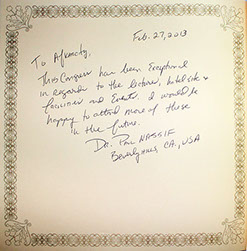 Feb. 27, 2013
To
This Congress has been Exceptional
in regard to the lectures, hotel site &
facilities and Events. I would be
happy to attend more of these
in the future.
Dr. Paul NASSIF
Beverly Hills, CA, USA